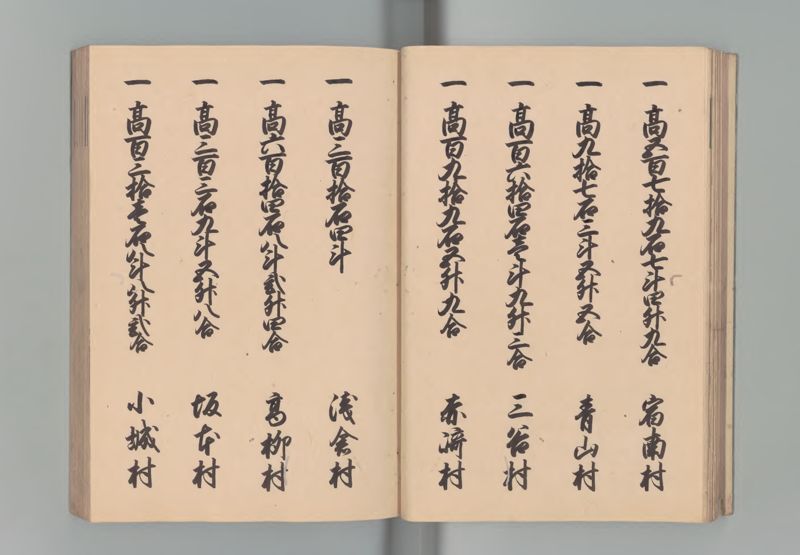 一高五百七拾九石七斗四升九合 宿南村
一高九拾七石三斗五升五合 青山村
一高百六拾四石壱斗九升三合 三谷村
一高百九拾九石五升九合 赤崎村
一高三百拾石四斗 浅倉村
一高六百拾四石八斗弐升四合 高柳村
一高三百三石九斗五升八合 坂本村
一高百三拾壱石八斗八升弐合 小城村